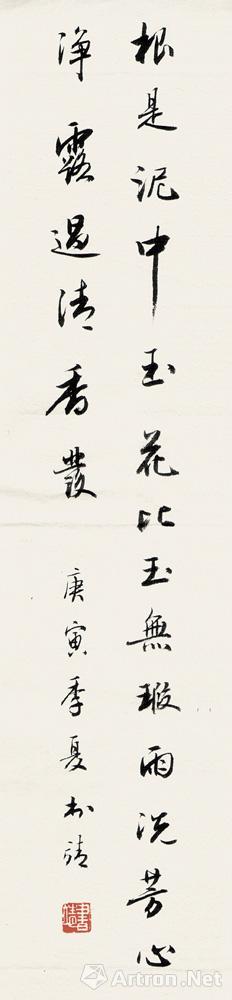 根是泥中玉花比玉無瑕雨洗芳心
净露過清香發
庚寅季夏於靖
Artron.Net